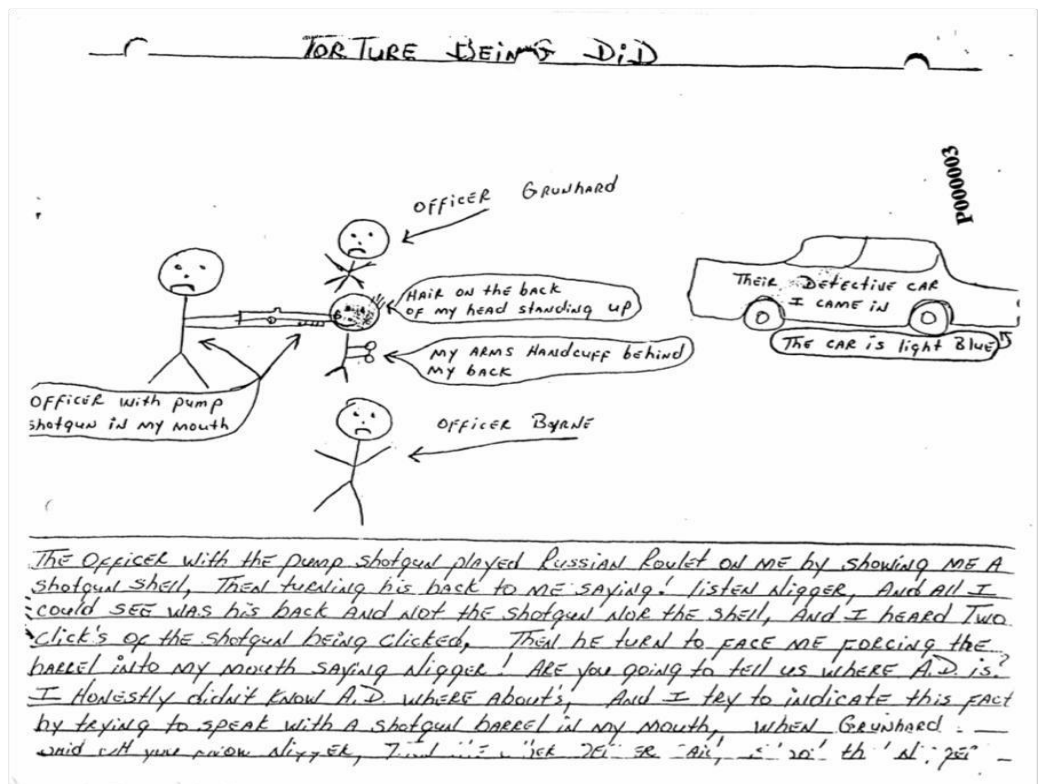 TORTURE BEING DiD
P000003
OFFICER GRUNHARD
HAIR ON the bACK
OF my head STANding up
Their Detective CAR
I CAME iN
The CAR is light Blue
MY ARMS HANdcuFF behiNd
My bACK
OFFicER with pump
shotguN iN MY MOUth
OFFICER BYRNE
The OFFicER with the pump shotguN plAyed RussiAN Roulet ON ME by showiNg ME A
shotguN shell, TheN turNiNg his bAcK to ME sAyiNg! listeN Nigger, ANd All I
could SEE WAS his bAcK ANd Not the shotguN NoR the shell, ANd I heARd Two
click's of the shotguN beiNg clicked, TheN he turN to FAcE ME FORciNg the
bARRel iNto My Mouth sAyiNg Nigger! ARE you goiNg to tell us whERE A.D. is?
I HoNestly didN't KNow A.D. whERE About's, ANd I try to iNdicAte this FAct
by tryiNg to speAK with A shotguN bARRel iN My Mouth, wheN GRUNhARd
sAid you KNow Nigger,